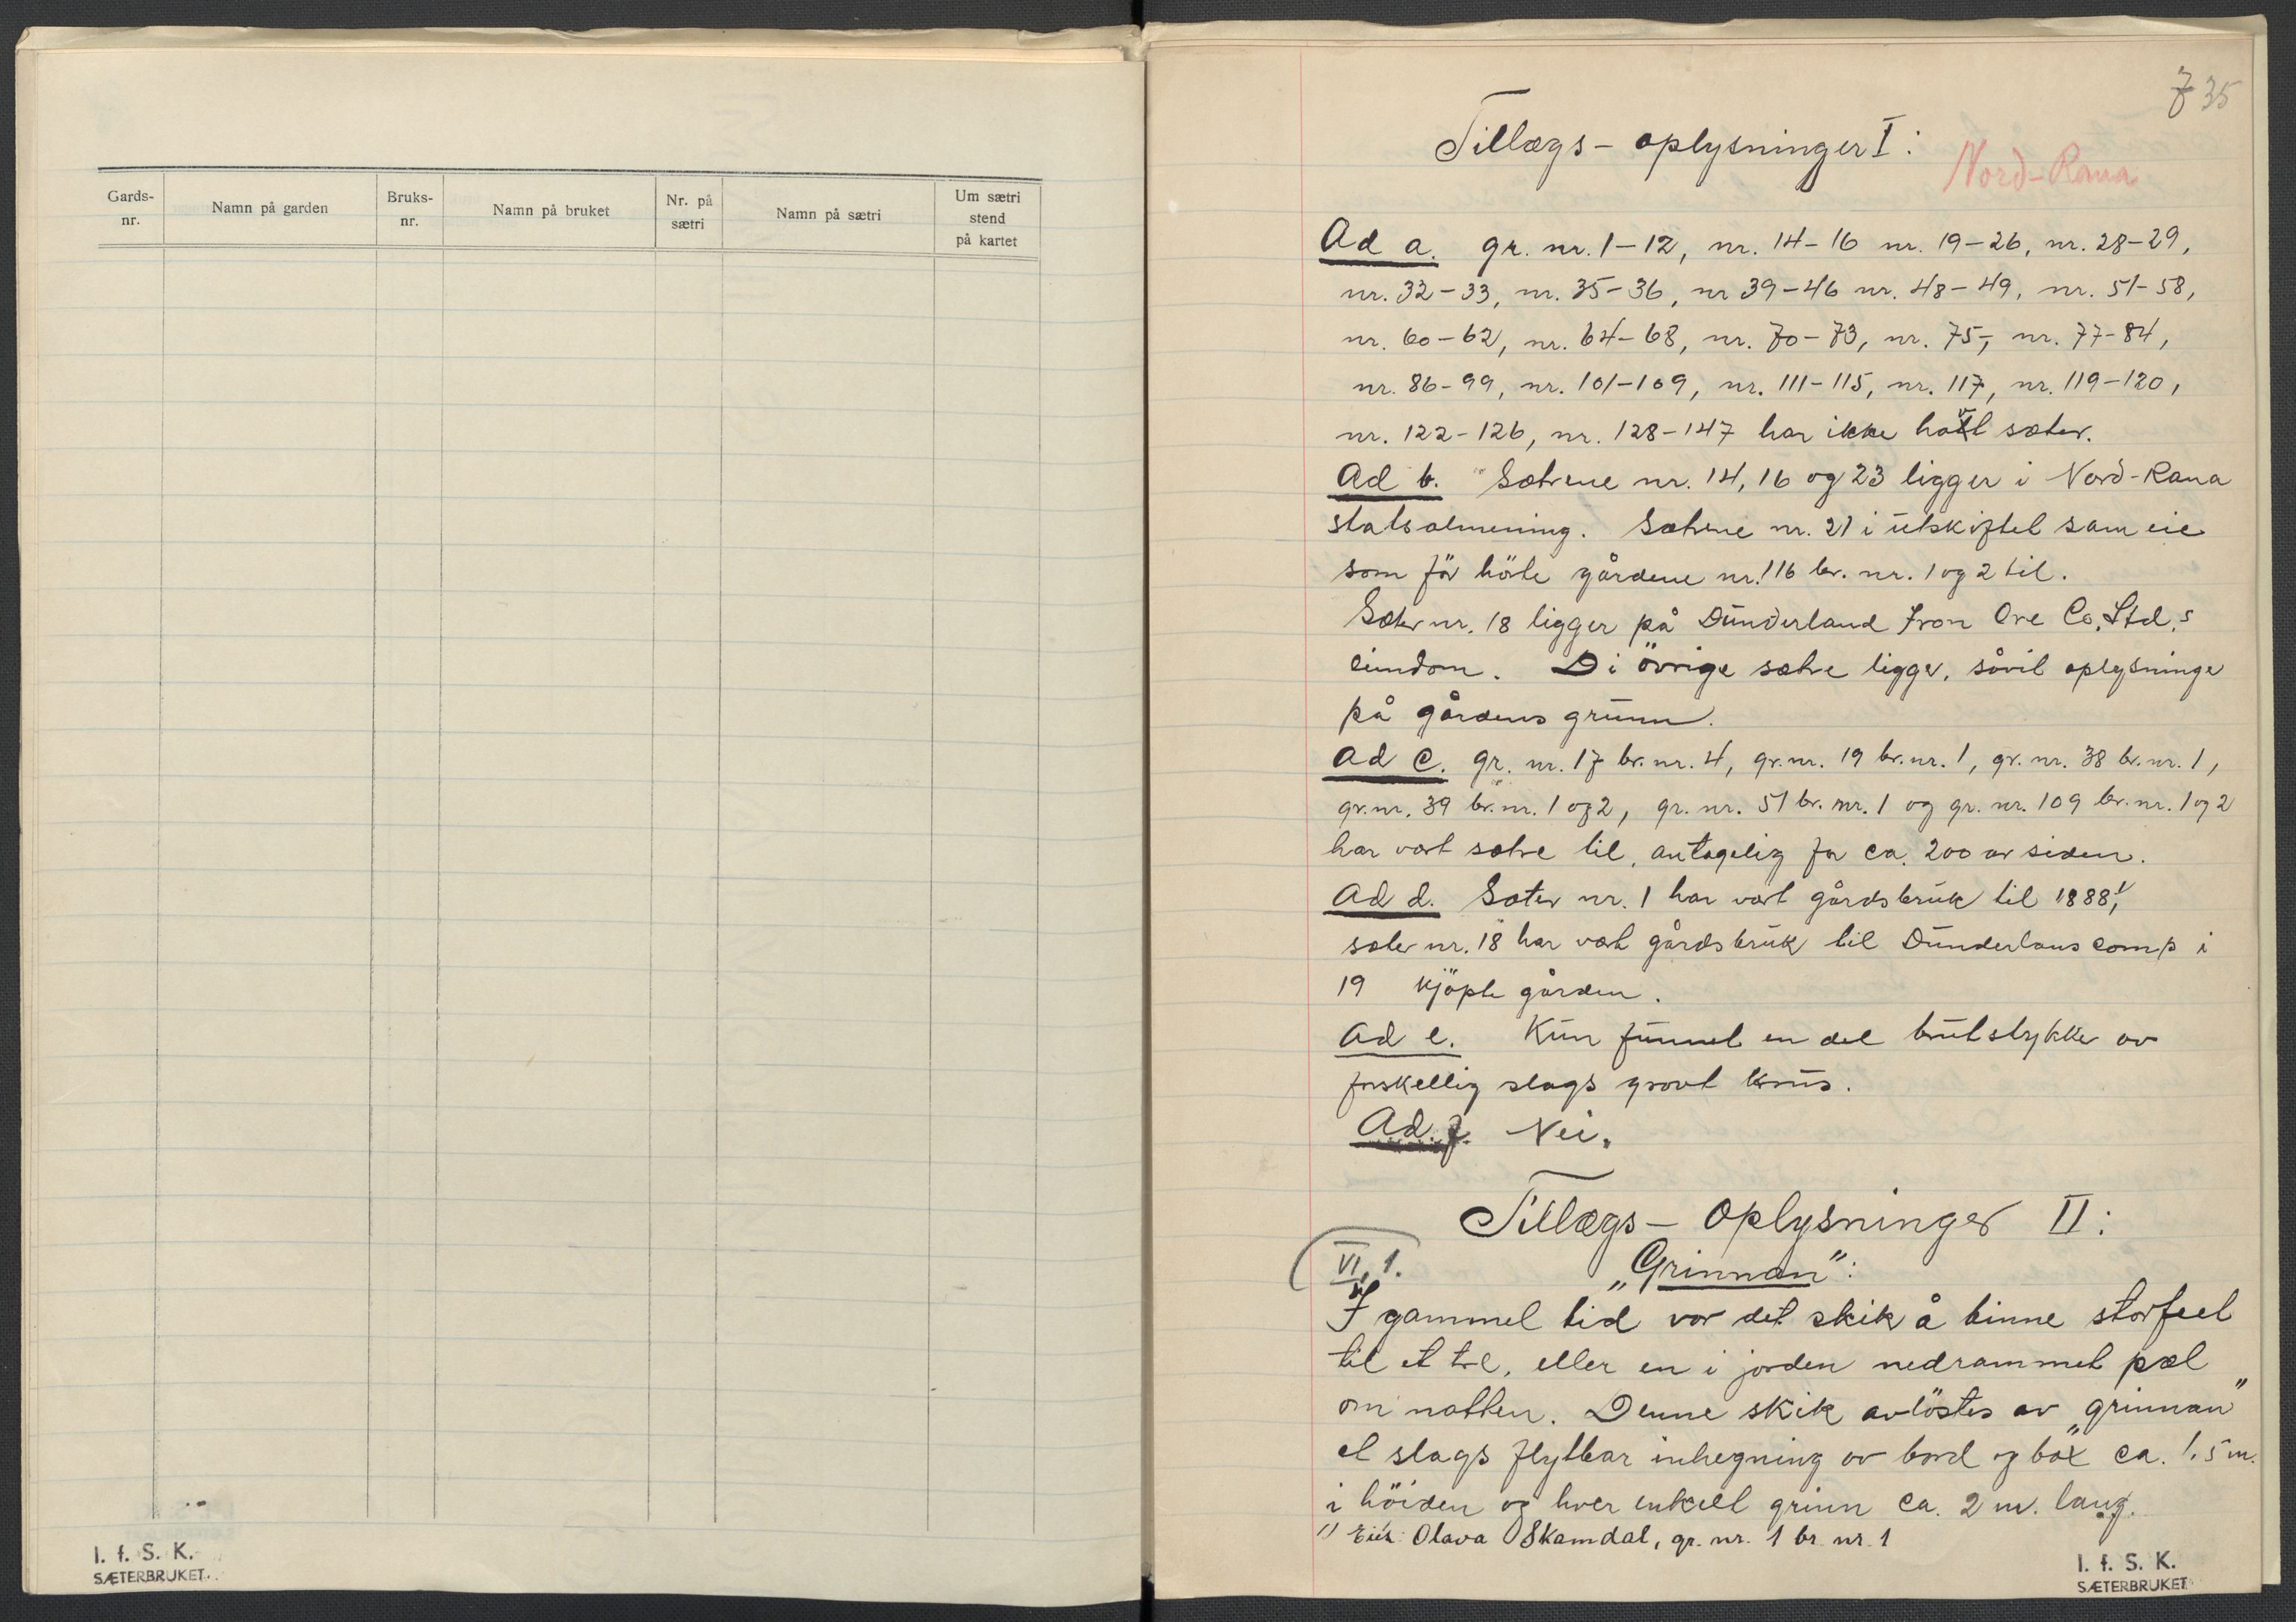 Gards-
nr.
Namn på garden
Bruks-
nr.
Namn på bruket
Nr. på
sætri
Namn på sætri
Um sætri
stend
på kartet
I. f. S. K.
SÆTERBRUKET
7 35
Tillægs-oplysninger I:
Nord-Rana
Ad a. gr. nr. 1-12, nr. 14-16 nr. 19-26, nr. 28-29,
nr. 32-33, nr. 35-36, nr 39-46 nr. 48-49, nr. 51-58,
nr. 60-62, nr. 64-68, nr. 70-73, nr. 75-, nr. 77-84,
nr. 86-99, nr. 101-109, nr. 111-115, nr. 117, nr. 119-120,
nr. 122-126, nr. 128-147 har ikke havt sæter.
Ad b. Sætrene nr. 14, 16 og 23 ligger i Nord-Rana
statsalmening. Sætrene nr. 21 i utskiftet sameie
som för hörte gårdene nr. 116 br. nr. 1 og 2 til.
Sæter nr. 18 ligger på Dunderland Iron Ore Co. Ltd.s
eiendom. Di övrige sætre ligger, såvit oplysninge
på gårdens grunn.
Ad c. gr. nr. 17 br. nr. 4, gr. nr. 19 br. nr. 1, gr. nr. 38 br. nr. 1,
gr. nr. 39 br. nr. 1 og 2, gr. nr. 51 br. nr. 1 og gr. nr. 109 br. nr. 1 og 2
har vært sætre til, antagelig for ca. 200 år siden.
Ad d. Sæter nr. 1 har vært gårdsbruk til 1888,1)
sæter nr. 18 har vært gårdsbruk til Dunderlans comp i
19 kjöpte gården.
Ad e. Kun funnet en del brutstykker av
forskellig slags grovt krus.
Ad f. Nei.
Tillægs-Oplysninger II:
VI, 1.
„Grinnan":
I gammel tid var det skik å binne storfeet
til et tre, eller en i jorden nedrammet pæl
om natten. Denne skik avlöstes av „grinnan"
et slags flytbar inhegning av bord og ca. 1,5 m.
i höiden og hver enkelt grinn ca. 2 m. lang.
1) Eier: Olava Skamdal, gr. nr. 1 br. nr. 1
I. f. S. K.
SÆTERBRUKET